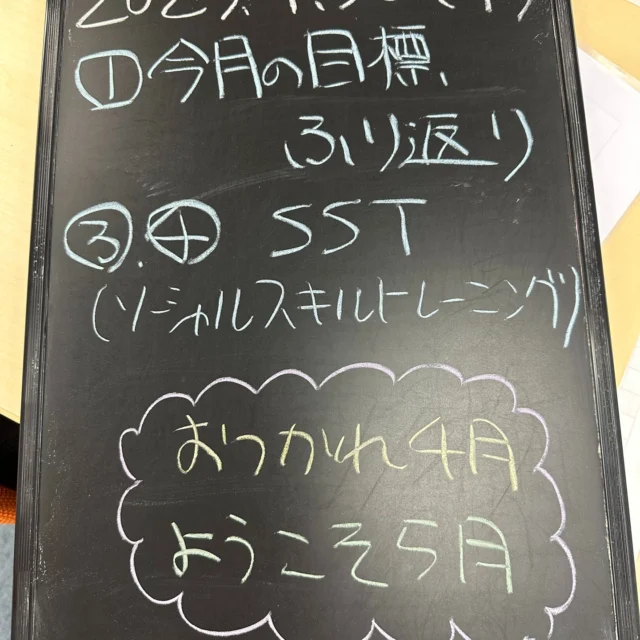 ①今月の目標
ふり返り
③.④ SST
(ソーシャルスキルトレーニング)
おつかれ4月
ようこそ5月